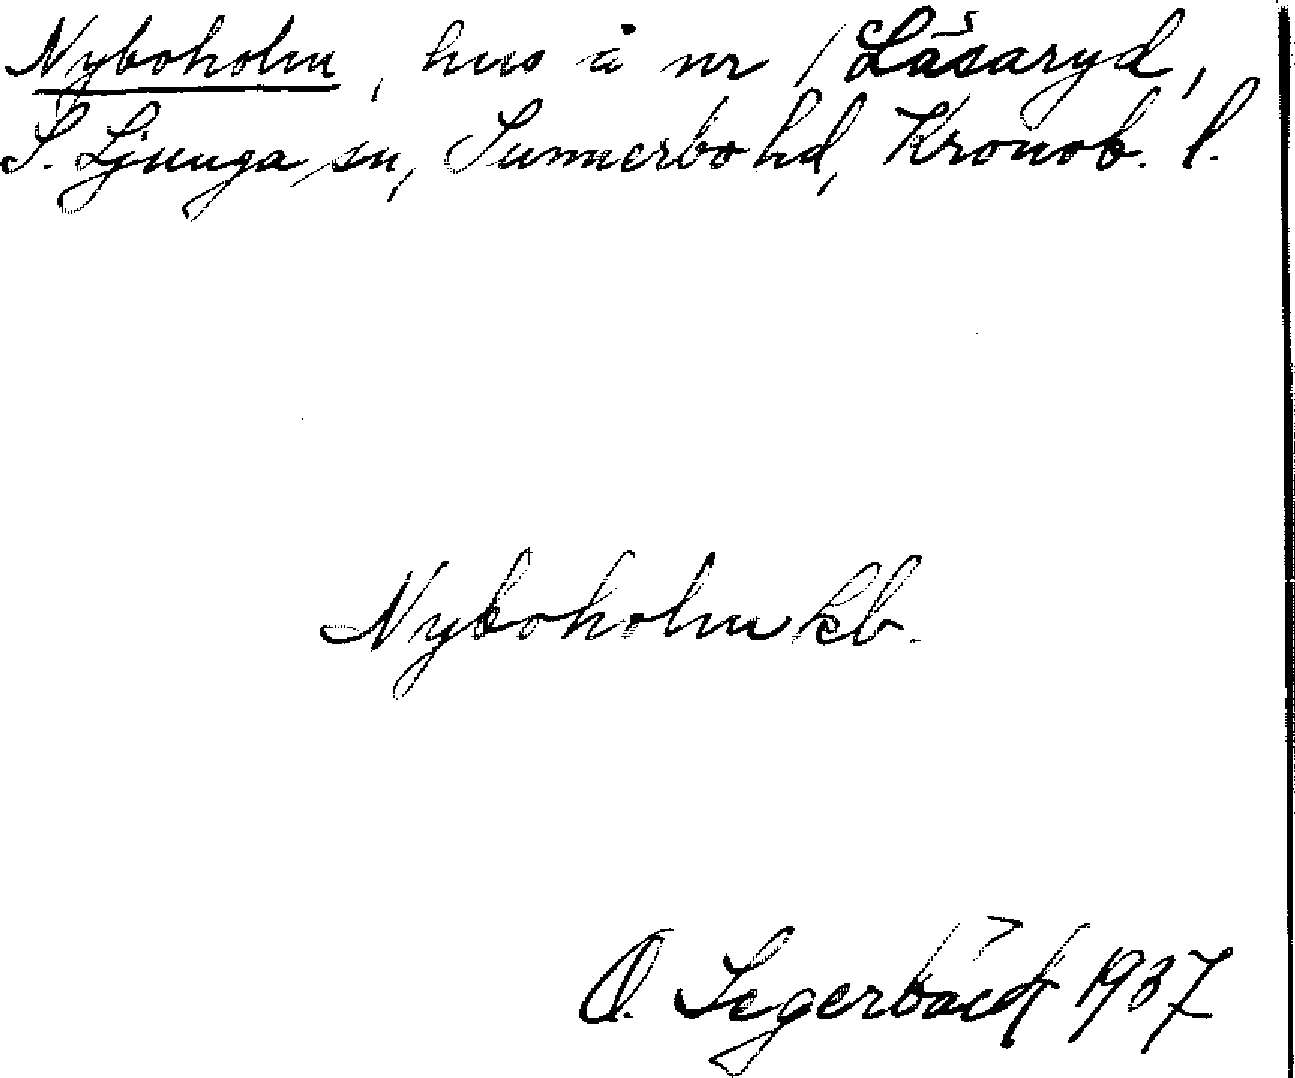 Nyboholm, hus å nr 1 Läsaryd,
S. Ljunga sn, Sunnerbo hd, Kronob. l.
Nyboholm kb.
O. Segerbäck 1937